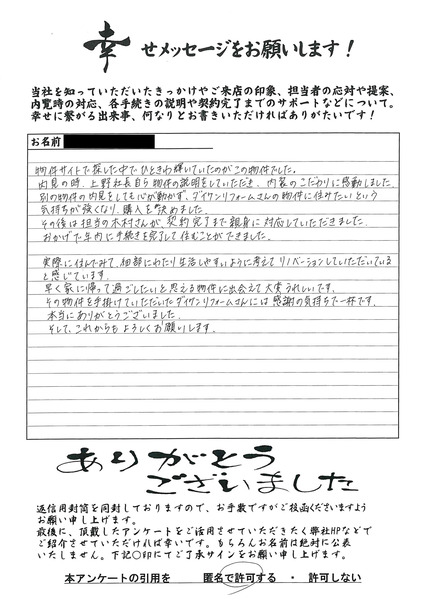 幸せメッセージをお願いします！
当社を知っていただいたきっかけやご来店の印象、担当者の応対や提案、
内覧時の対応、各手続きの説明や契約完了までのサポートなどについて。
幸せに繋がる出来事、何なりとお書きいただければありがたいです！
お名前
物件サイトで探した中でひときわ輝いていたのがこの物件でした。
内見の時、上野社長自ら物件の説明をしていただき、内装のこだわりに感動しました。
別の物件の内見をしても心が動かず、ダイケンリフォームさんの物件に住みたいという
気持ちが強くなり、購入を決めました。
その後は担当の木村さんが、契約完了まで親身に対応していただきました。
おかげで年内に手続きを完了して住むことができました。
実際に住んでみて、細部にわたり生活しやすいように考えてリノベーションしていただいている
と感じています。
早く家に帰って過ごしたいと思える物件に出会えて大変うれしいです。
その物件を手掛けていただいたダイケンリフォームさんには感謝の気持ちで一杯です。
本当にありがとうございました。
そして、これからもよろしくお願いします。
ありがとう
ございました
返信用封筒を同封しておりますので、お手数ですがご投函くださいますよう
お願い申し上げます。
最後に、頂戴したアンケートをご活用させていただきたく弊社HPなどで
ご紹介させていただければ幸いです。もちろんお名前は絶対に公表
いたしません。下記〇印にてご了承サインをお願い申し上げます。
本アンケートの引用を 匿名で許可する ・ 許可しない